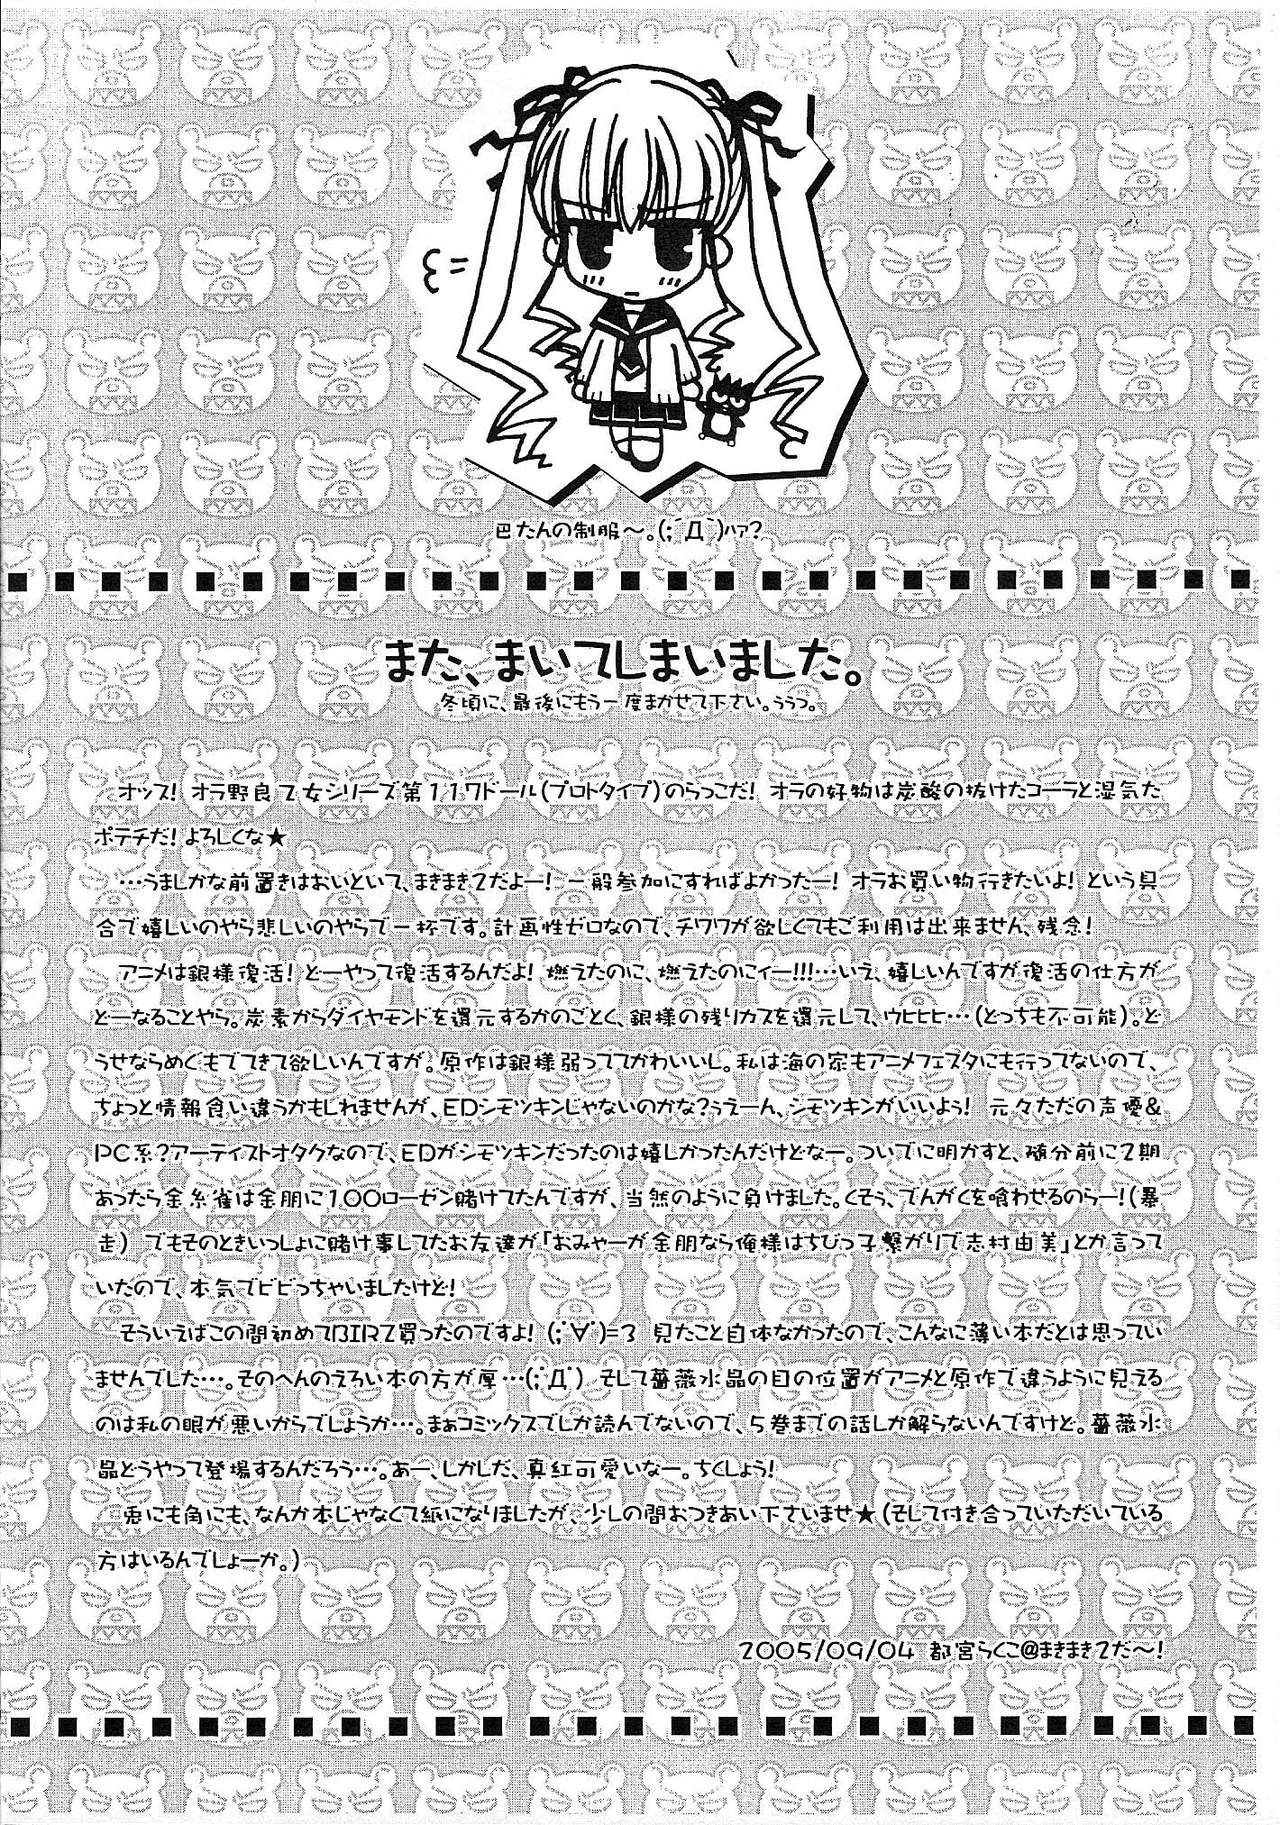 巴たんの制服～。(;´Д｀)ハァ?
また、まいてしまいました。
冬頃に、最後にもう一度まかせて下さい。ううっ。
オッス! オラ野良乙女シリーズ第117ドール(プロトタイプ)のらっこだ! オラの好物は炭酸の抜けたコーラと湿気た
ポテチだ! よろしくな★
…うましかな前置きはおいといて、まきまき2だよー! 一般参加にすればよかったー! オラお買い物行きたいよ! という具
合で嬉しいのやら悲しいのやらで一杯です。計画性ゼロなので、チワワが欲しくてもご利用は出来ません、残念!
アニメは銀様復活! どーやって復活するんだよ! 燃えたのに、燃えたのにィー!!!…いえ、嬉しいんですが復活の仕方が
どーなることやら。炭素からダイヤモンドを還元するかのごとく、銀様の残りカスを還元して、ウヒヒヒ…(どっちも不可能)。ど
うせならめぐもでてきて欲しいんですが。原作は銀様弱っててかわいいし。私は海の家もアニメフェスタにも行ってないので、
ちょっと情報食い違うかもしれませんが、EDシモツキンじゃないのかな?うえーん、シモツキンがいいよう! 元々ただの声優&
PC系?アーティストオタクなので、EDがシモツキンだったのは嬉しかったんだけどなー。ついでに明かすと、随分前に2期
あったら金糸雀は金朋に100ローゼン賭けてたんですが、当然のように負けました。くそぅ、でんがくを喰わせるのらー!(暴
走) でもそのときいっしょに賭け事してたお友達が「おみゃーが金朋なら俺様はちびっ子繋がりで志村由美」とか言って
いたので、本気でビビっちゃいましたけど!
そういえばこの間初めてBIRZ買ったのですよ! (;ﾟ∀ﾟ)=3 見たこと自体なかったので、こんなに薄い本だとは思ってい
ませんでした…。そのへんのえろい本の方が厚…(;ﾟДﾟ) そして薔薇水晶の目の位置がアニメと原作で違うように見える
のは私の眼が悪いからでしょうか…。まぁコミックスでしか読んでないので、5巻までの話しか解らないんですけど。薔薇水
晶どうやって登場するんだろう…。あー、しかしだ、真紅可愛いなー。ちくしょう!
兎にも角にも、なんか本じゃなくて紙になりましたが、少しの間おつきあい下さいませ★(そして付き合っていただいている
方はいるんでしょーか。)
2005/09/04 都宮らくこ@まきまき2だ～!